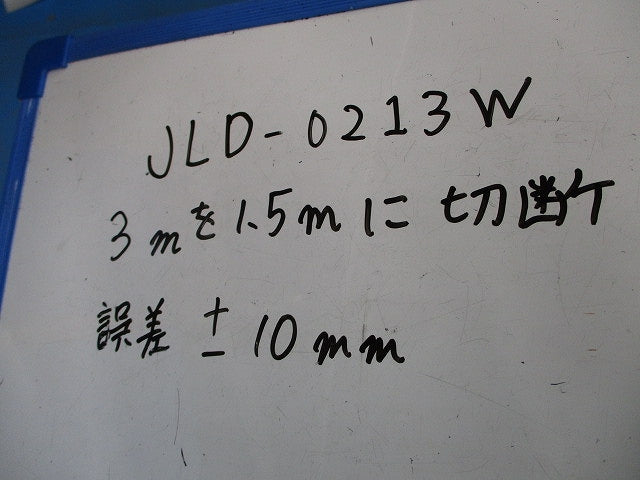 JLD-0213W
3mを1.5mに切断
誤差 ±10mm